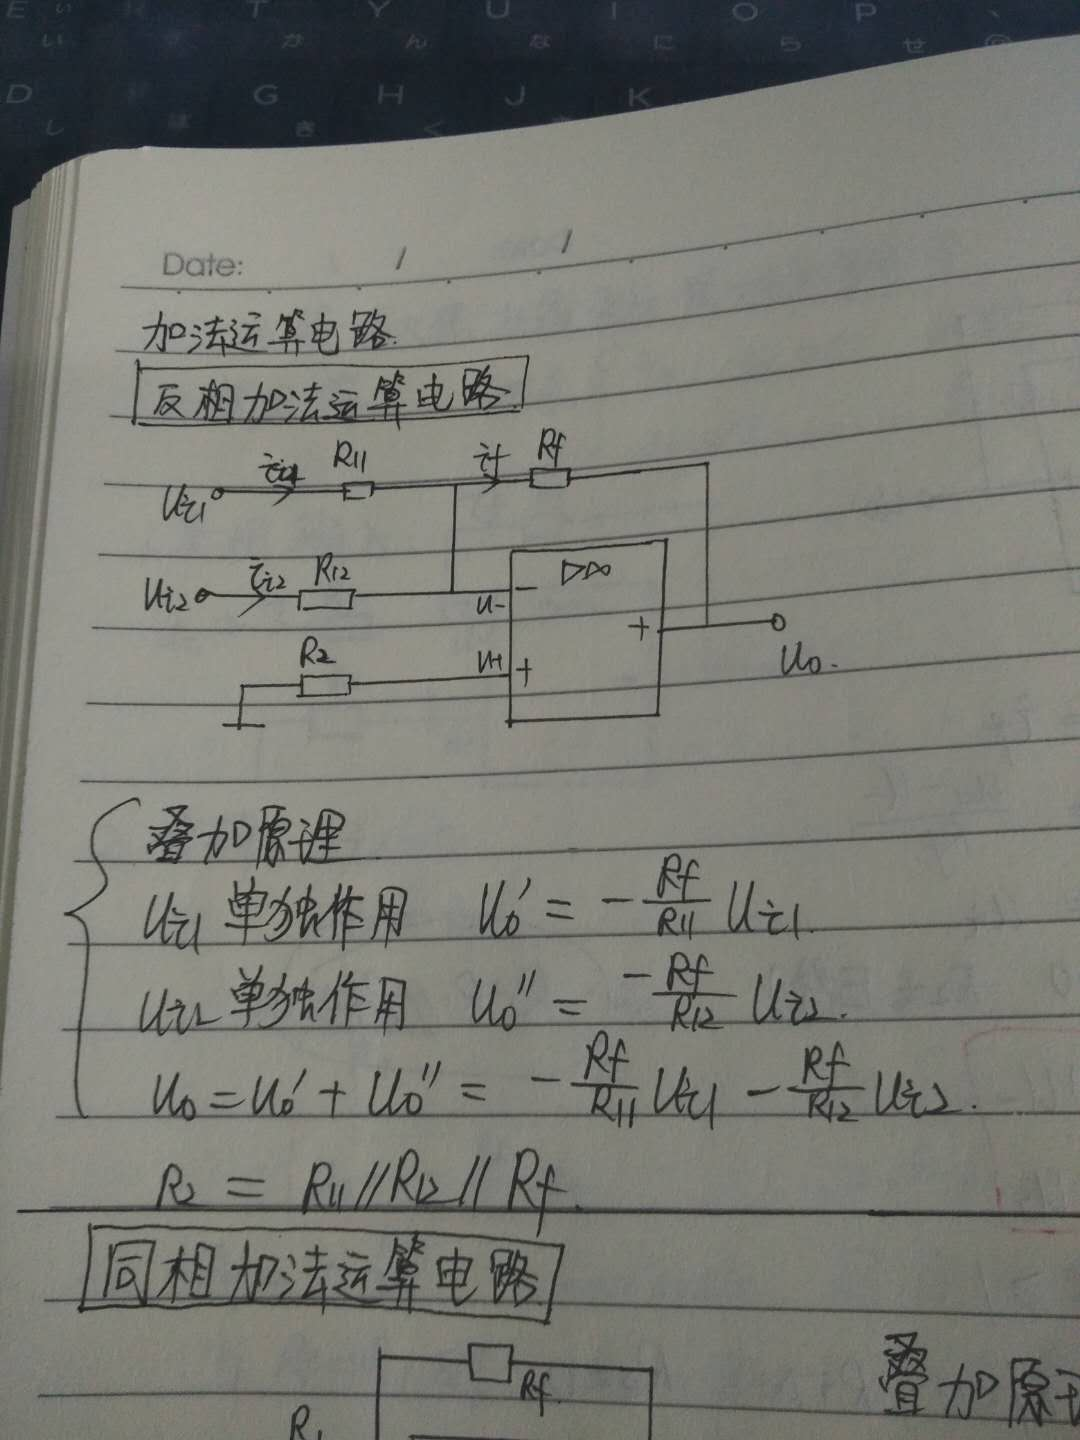 E い T Y U I O P
い か ん な に ら せ
D G H J K
し き く
Date: / /
加法运算电路.
反相加法运算电路
Ui1 ii1 R11 if Rf
Ui2 ii2 R12 U- - ▷∞
R2 U+ + + Uo.
叠加原理
Ui1 单独作用 Uo' = -Rf/R11 Ui1.
Ui2 单独作用 Uo'' = -Rf/R12 Ui2.
Uo = Uo' + Uo'' = -Rf/R11 Ui1 - Rf/R12 Ui2.
R2 = R11//R12//Rf.
同相加法运算电路
Rf
叠加原
R1